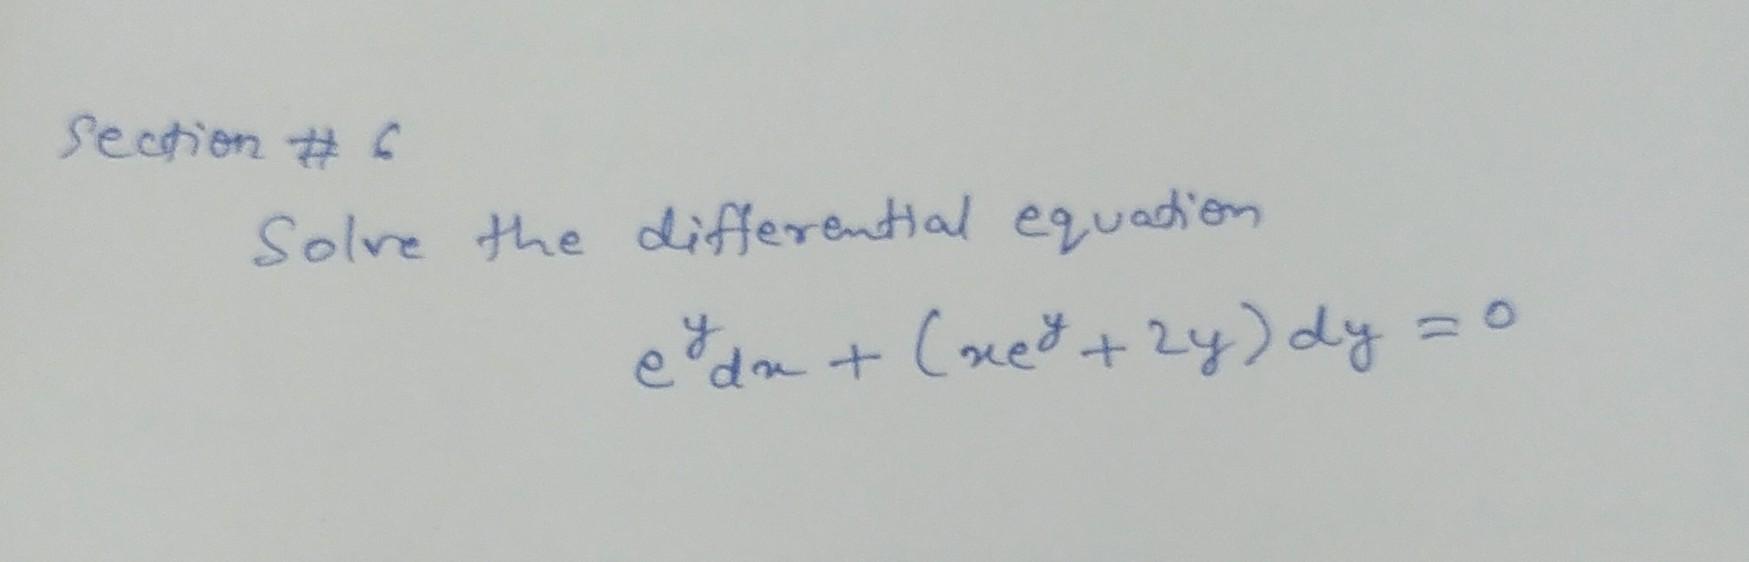 Section # 6
Solve the differential equation
e^y dx + (xe^y + 2y) dy = 0